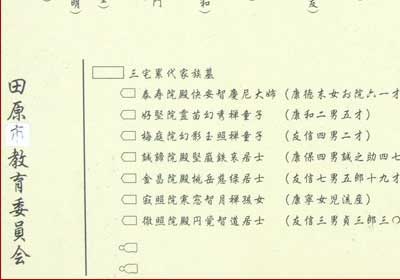 明）
和）
友
三宅累代家族墓
泰寿院殿快安智慶尼大姉（康徳末女お院六一才
好堅院霊苗幻秀禅童子（康和二男五才）
梅庭院幻影玉照禅童子（友信四男二才）
誠諦院殿堅巌鉄衆居士（康保四男誠之助四七
金昌院殿桃岳慈條居士（友信七男五郎十九才
寂照院寒窓智月禅孩女（康寧女児流産）
微照院殿円覚智道居士（友信三男貞三郎三〇
田原市教育委員会